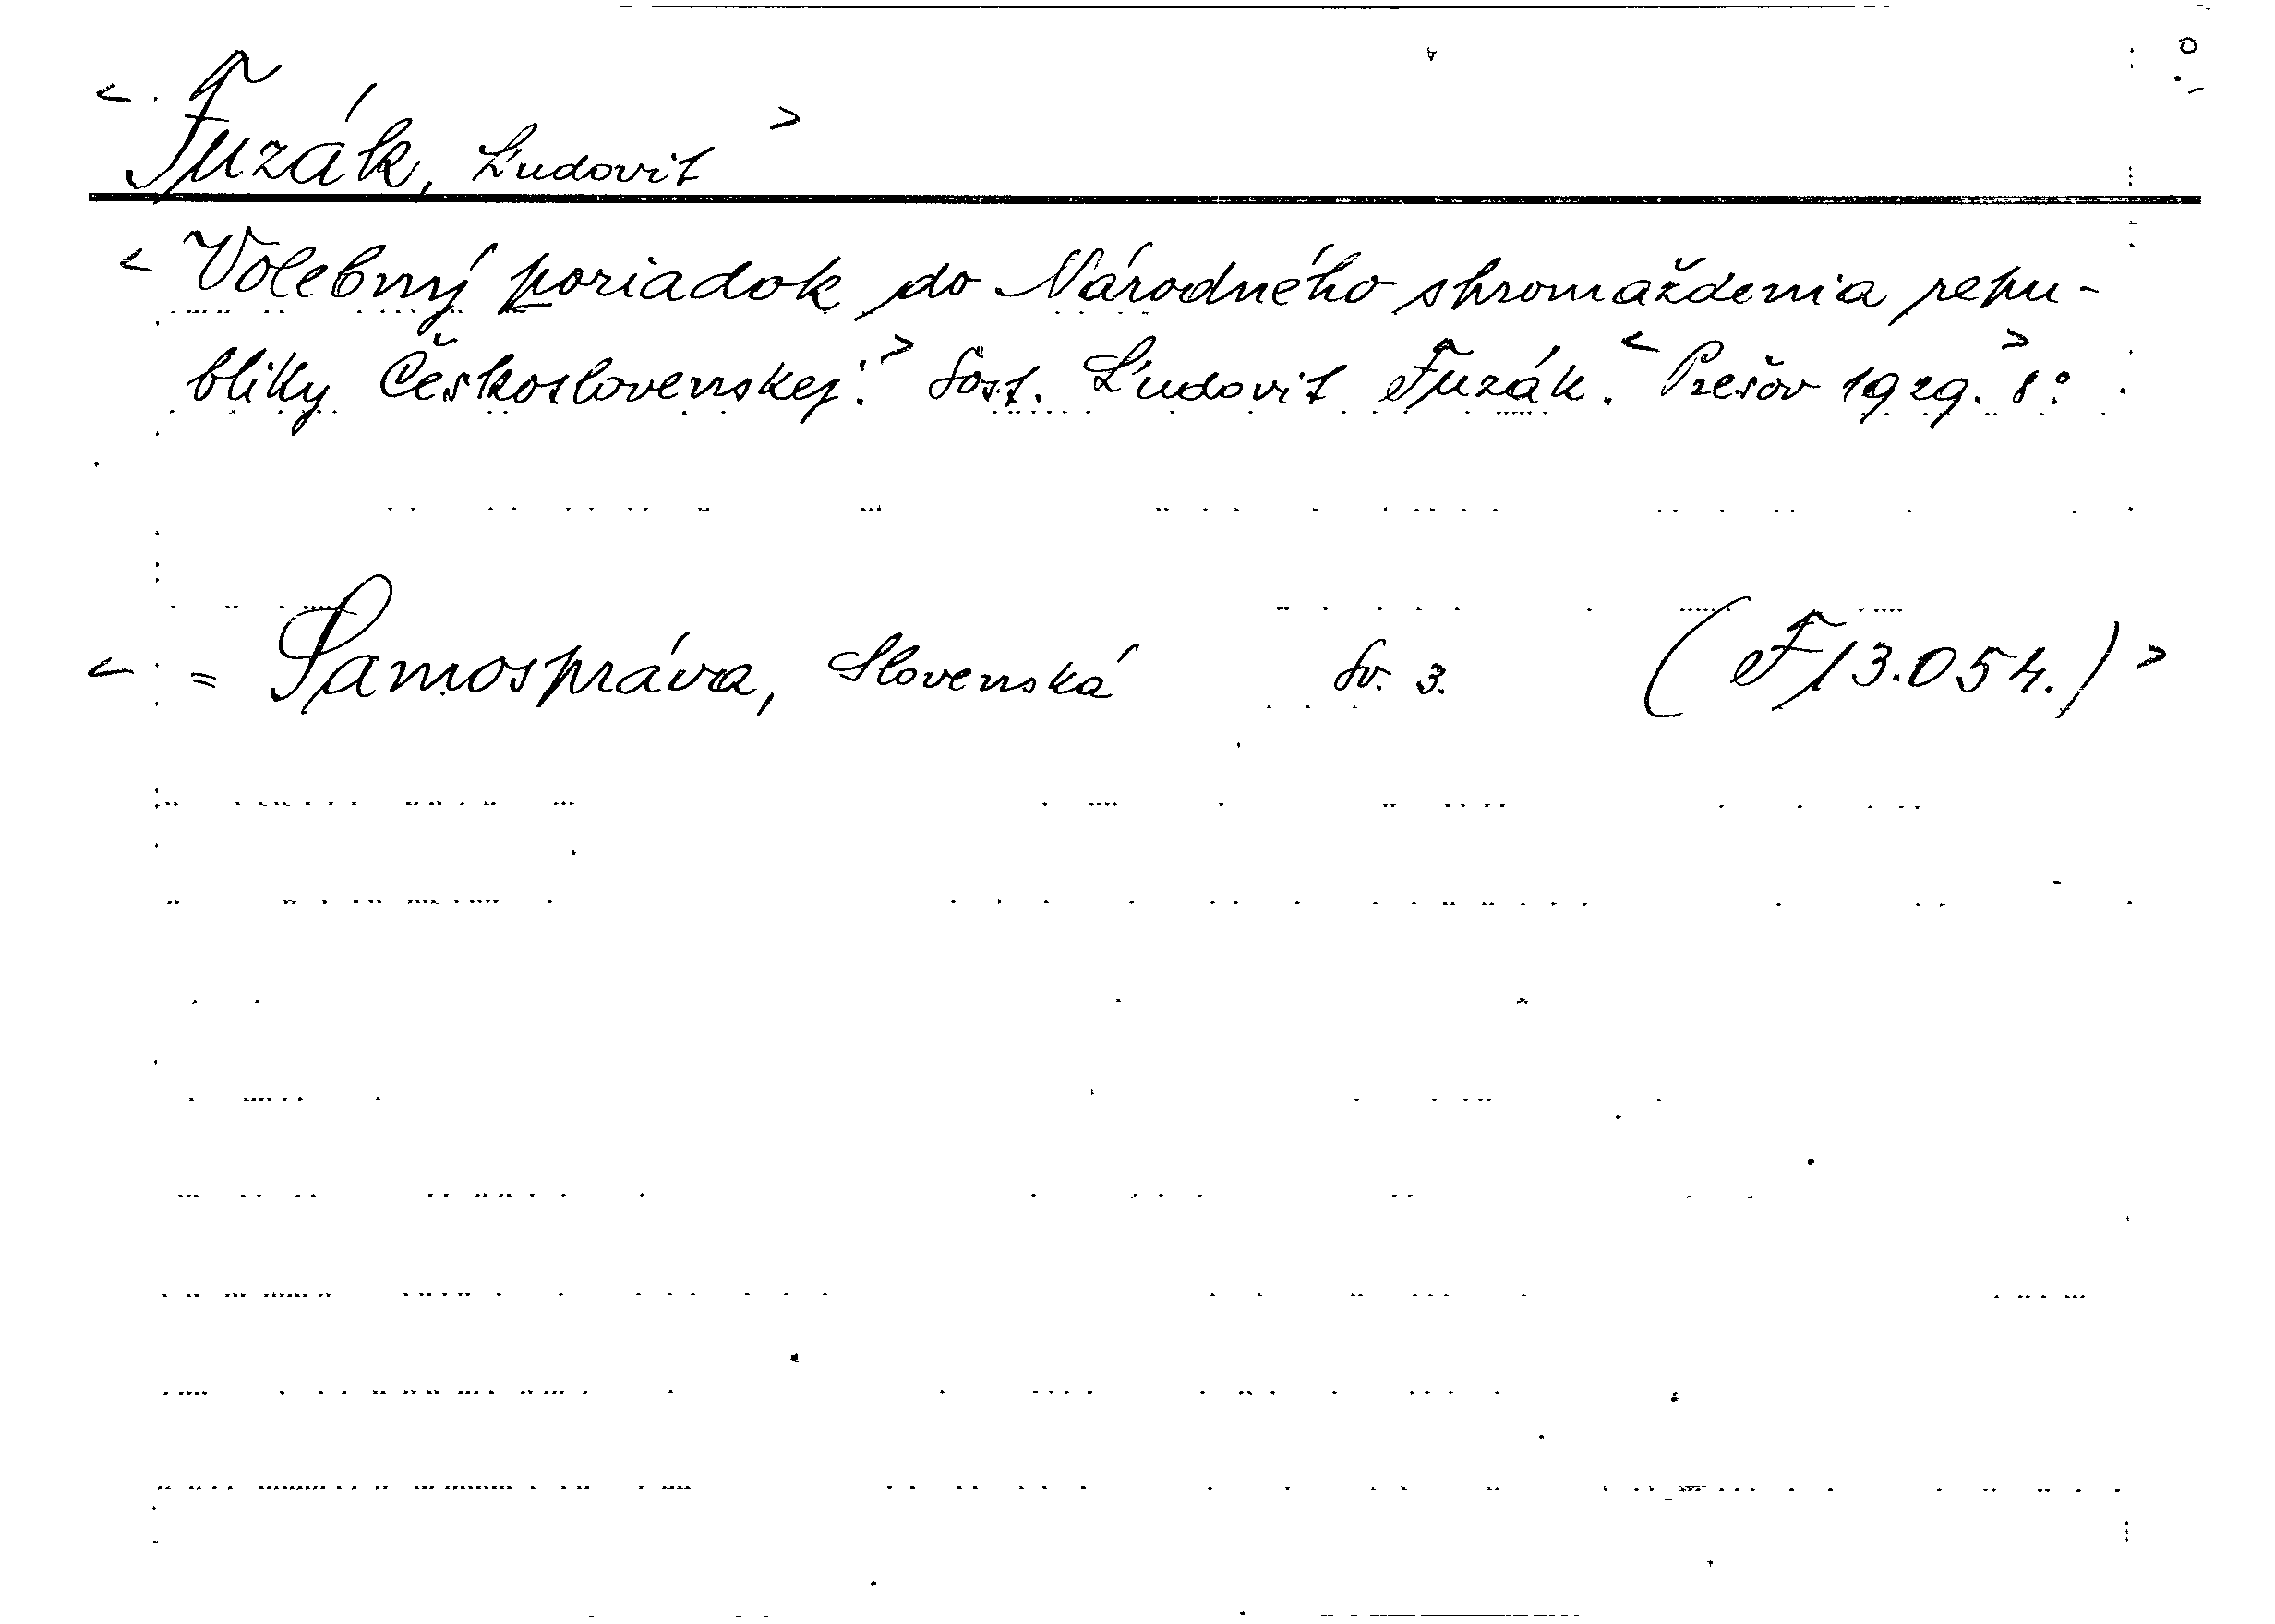 < Fuzák, Ľudovit >
< Volebný poriadok do Národného shromaždenia repu-
bliky Československej. > Sost. Ľudovit Fuzák. < Prešov 1929. > 8°.
< = Samospráva, Slovenská Sv. 3. (F 13.054.) >